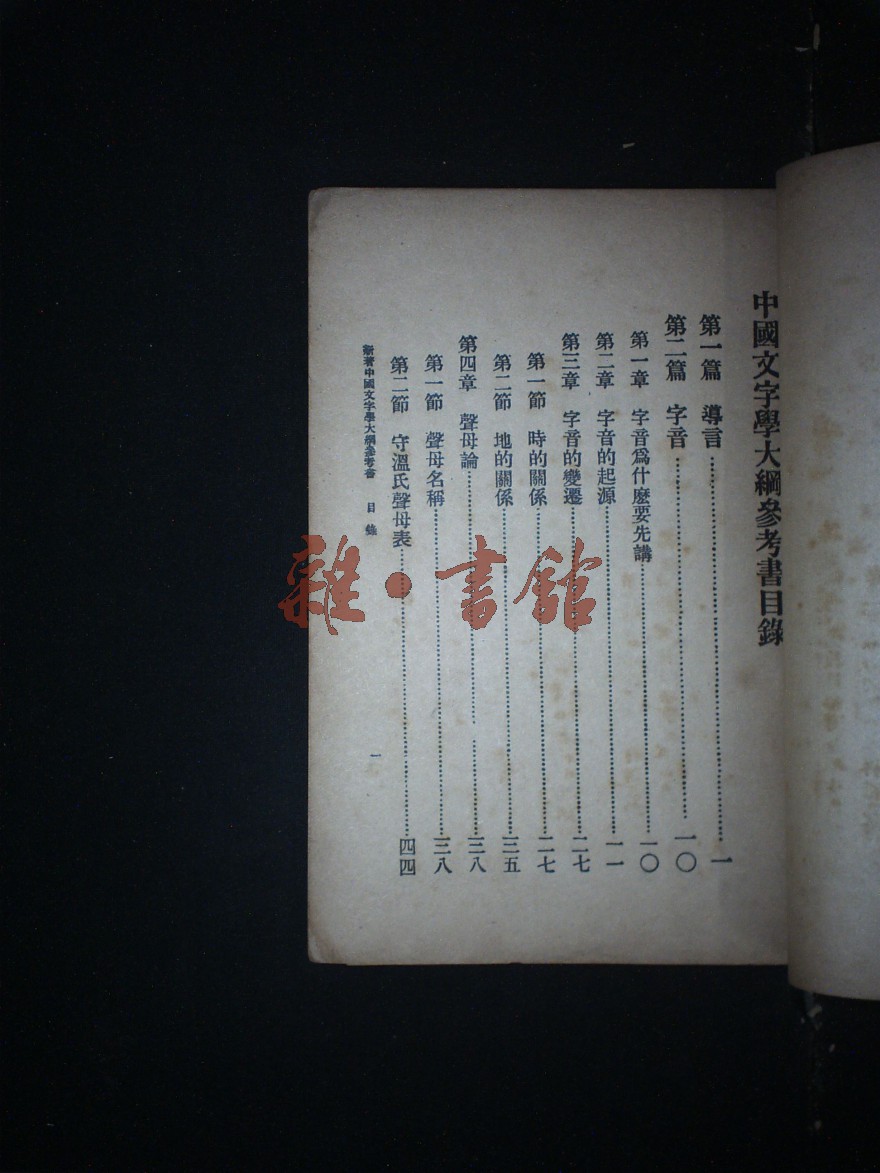 中國文字學大綱參考書目錄
第一篇 導言……一
第二篇 字音……一〇
第一章 字音爲什麼要先講……一〇
第二章 字音的起源……一一
第三章 字音的變遷……二七
第一節 時的關係……二七
第二節 地的關係……三五
第四章 聲母論……三八
第一節 聲母名稱……三八
第二節 守溫氏聲母表……四四
新著中國文字學大綱參考書 目錄
一
雜·書館